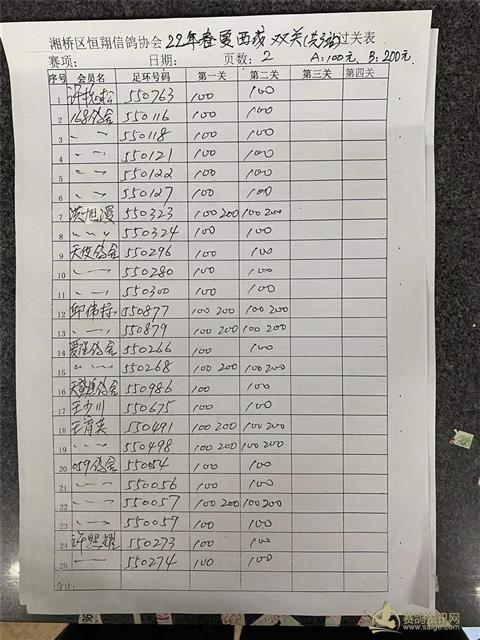 湘桥区恒翔信鸽协会 22年春夏西线 双关(共3张)过关表
赛项: 日期: 页数: 2 A:100元 B:200元
序号 会员名 足环号码 第一关 第二关 第三关 第四关
1 许松 550763 100 100
2 168鸽舍 550116 100 100
3 〃 550118 100 100
4 〃 550121 100 100
5 〃 550122 100 100
6 〃 550127 100 100
7 洪旭漫 550323 100 200 100 200
8 〃 550324 100 100
9 天俊鸽舍 550296 100 100
10 〃 550280 100 100
11 〃 550300 100 100
12 邱伟标 550877 100 200 100 200
13 〃 550879 100 200 100 200
14 鸽舍 550266 100 100
15 〃 550268 100 200 100 200
16 鸽舍 550986 100 100
17 王少川 550675 100 100
18 王英 550491 100 200 100 200
19 〃 550498 100 200 100 200
20 059鸽舍 550054 100 100
21 〃 550056 100 100
22 〃 550057 100 200 100 200
23 〃 550059 100 100
24 许照耀 550273 100 100
25 〃 550274 100 100
合计:
赛鸽资讯网
www.saige.com